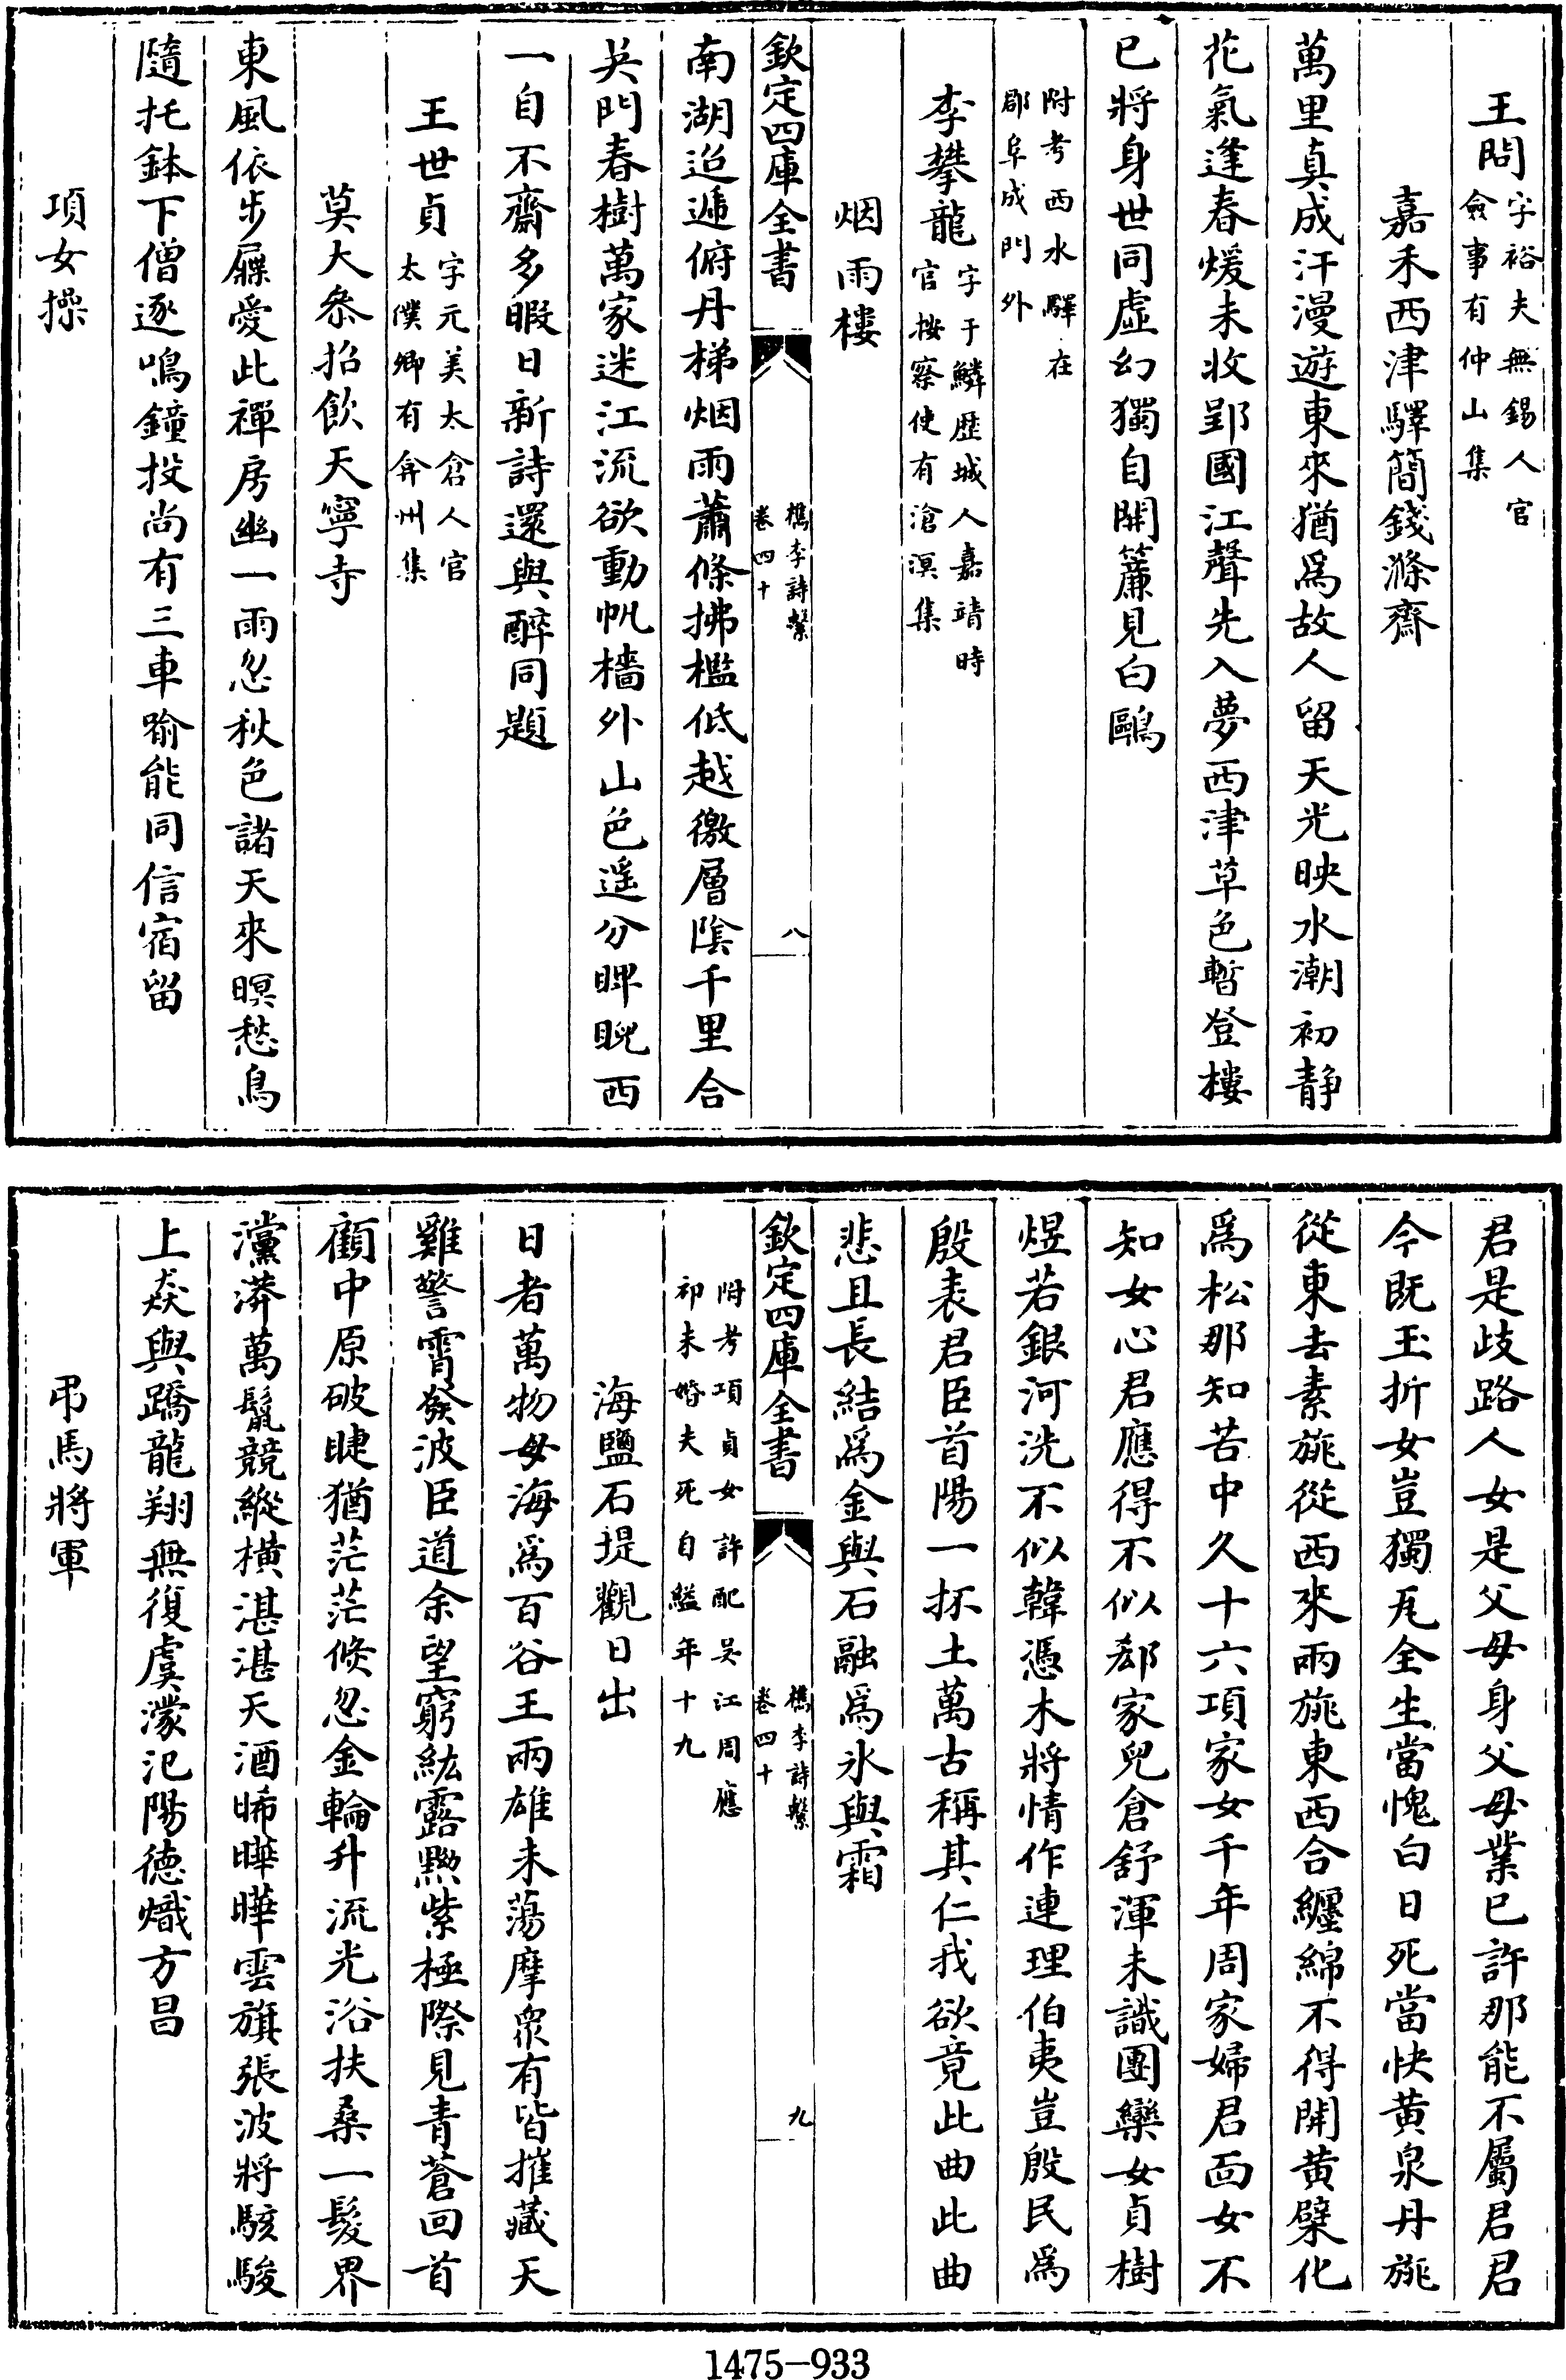 王問字裕夫無錫人官
僉事有仲山集
嘉禾西津驛簡錢滌齋
萬里真成汗漫遊東來猶爲故人留天光映水潮初静
花氣逢春煖未收郢國江聲先入夢西津草色暫登樓
已將身世同虛幻獨自開簾見白鷗
附考西水驛在
郡阜成門外
李攀龍字于鱗歴城人嘉靖時
官按察使有滄溟集
烟雨樓
欽定四庫全書
檇李詩繫
卷四十
八
南湖迢遞俯丹梯烟雨蕭條拂檻低越徼層陰千里合
吴門春樹萬家迷江流欲動帆檣外山色遥分睥睨西
一自不齋多暇日新詩還與醉同題
王世貞字元美太倉人官
太僕卿有弇州集
莫大叅招飲天寧寺
東風依步屧愛此禪房幽一雨忽秋色諸天來暝愁鳥
隨托鉢下僧逐鳴鐘投尚有三車喻能同信宿留
項女操
君是歧路人女是父母身父母業已許那能不屬君君
今既玉折女豈獨瓦全生當愧白日死當快黄泉丹旐
從東去素旐從西來兩旐東西合纏綿不得開黄檗化
爲松那知苦中久十六項家女千年周家婦君面女不
知女心君應得不似郄家兒倉舒渾未識團欒女貞樹
煜若銀河洗不似韓憑木將情作連理伯夷豈殷民爲
殷表君臣首陽一抔土萬古稱其仁我欲竟此曲此曲
悲且長結爲金與石融爲氷與霜
欽定四庫全書
檇李詩繫
卷四十
九
附考項貞女許配吴江周應
祁未婚夫死自縊年十九
海鹽石堤觀日出
日者萬物母海爲百谷王兩雄未蕩摩衆有皆摧藏天
雞警霄發波臣道余望窮紘露黝紫極際見青蒼回首
顧中原破睫猶茫茫倏忽金輪升流光浴扶桑一髮界
灙漭萬鬛競縱橫湛湛天酒晞曄曄雲旗張波將駭駿
上焱與蹻龍翔無復虞濛汜陽德熾方昌
弔馬將軍
1475-933